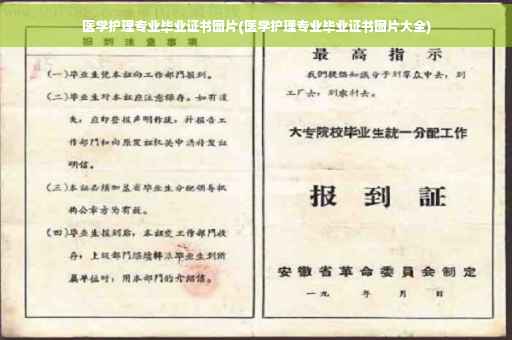 医学护理专业毕业证书图片(医学护理专业毕业证书图片大全)
报到注意事项
(一)毕业生凭本证向工作部门报到。
(二)毕业生对本证应注意保存。如有遗
失,应即登报声明作废,并报告工
作部门和向原发证机关申请补发证
明信。
(三)本证必须加盖省毕业生分配领导机
构公章方为有效。
(四)毕业生报到后,本证交工作部门收
存;上级部门继续转派毕业生到所
属单位时,用本部门的介绍信。
最高指示
我们提倡知识分子到群众中去,到
工厂去,到农村去。
大专院校毕业生統一分配工作
报到証
安徽省革命委員会制定
一九 年 月 日